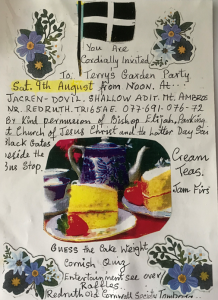 You Are
Cordially Invited
To. Terry's Garden Party
Sat. 9th August from NOON. At...
JACREN-DOVIL. SHALLOW ADIT. Mt. AMBROSE
NR. REDRUTH. TR165AF. 077-691-076-72
By Kind permission of Bishop Elijah, Parking
at Church of Jesus Christ and the Latter Day
Black Gates
beside the
Bus Stop.
Cream
Teas.
Jam First
Guess the Cake Weight
Cornish Quiz
Entertainment see over
Raffles.
Redruth Old Cornwall Society